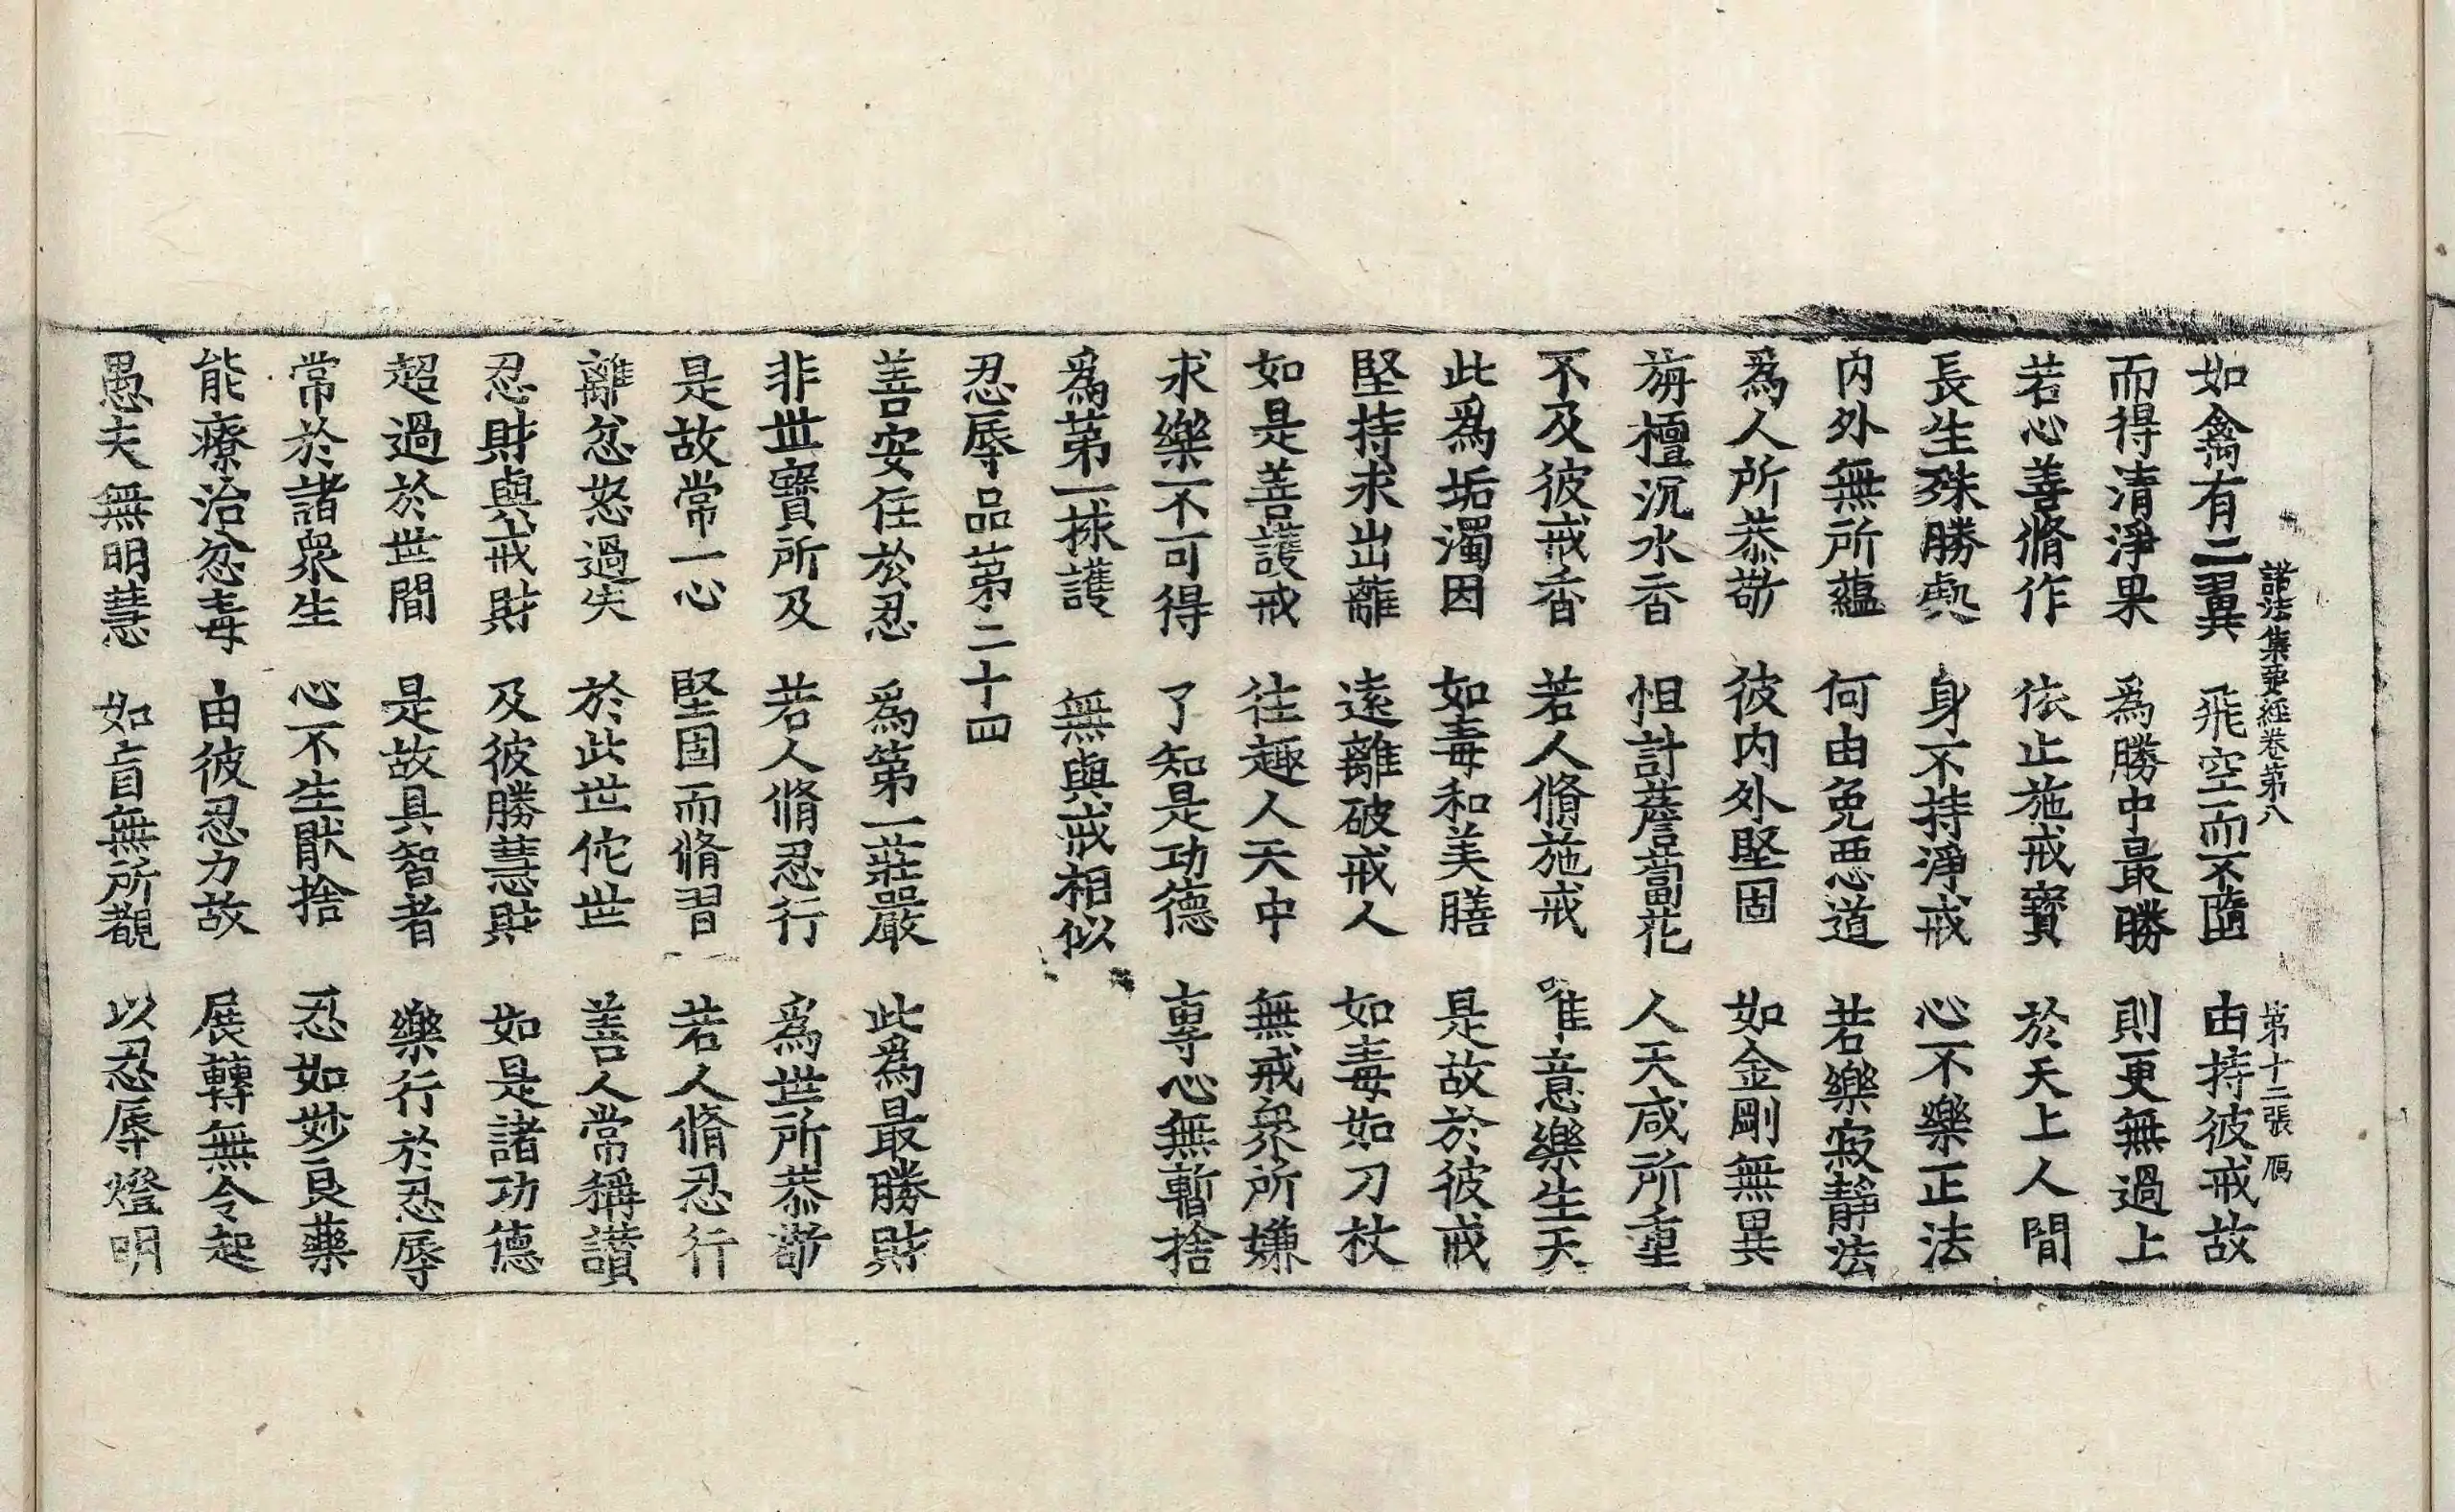 諸法集要經卷第八 第十二張 鴈
如禽有二翼 飛空而不墮 由持彼戒故
而得清淨果 為勝中最勝 則更無過上
若心善脩作 依止施戒寶 於天上人間
長生殊勝處 身不持淨戒 心不樂正法
內外無所蘊 何由免惡道 若樂寂靜法
為人所恭敬 彼內外堅固 如金剛無異
旃檀沉水香 怛計薝蔔花 人天咸所重
不及彼戒香 若人脩施戒 唯意樂生天
此為垢濁因 如毒和美膳 是故於彼戒
堅持求出離 遠離破戒人 如毒如刀杖
如是善護戒 往趣人天中 無戒衆所嫌
求樂不可得 了知是功德 專心無暫捨
為第一捄護 無與戒相似
忍辱品第二十四
善安住於忍 為第一莊嚴 此為最勝財
非世寶所及 若人脩忍行 為世所恭敬
是故常一心 堅固而脩習 若人脩忍行
離忿怒過失 於此世佗世 善人常稱讚
忍財與戒財 及彼勝慧財 如是諸功德
超過於世間 是故具智者 樂行於忍辱
常於諸衆生 心不生猒捨 忍如妙良藥
能療治忿毒 由彼忍力故 展轉無令起
愚夫無明慧 如盲無所覩 以忍辱燈明